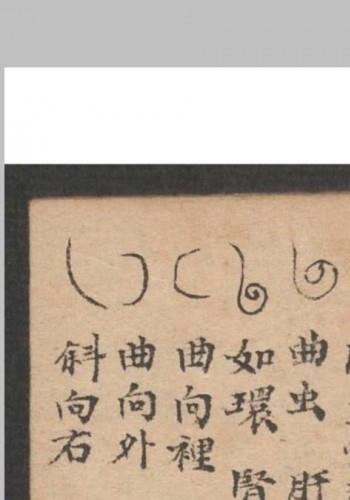 曲虫 肝
如環 腎
曲向裡
曲向外
斜向右